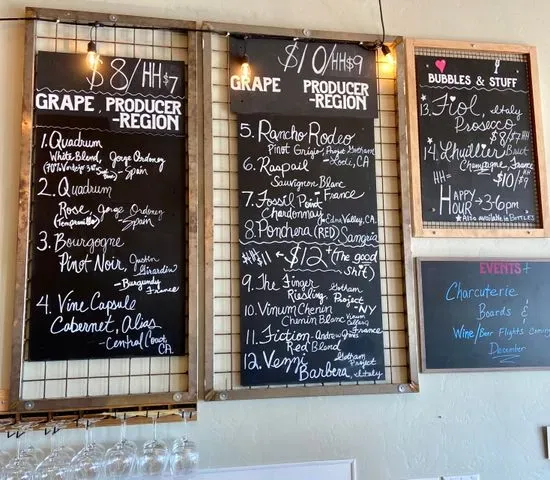 $8/HH $7
GRAPE PRODUCER
-REGION
1. Quadrum
White Blend, Jorge Ordonez
- Spain
2. Quadrum
Rose, Jorge Ordonez
(Tempranillo) - Spain
3. Bourgogne
Pinot Noir, Justin
Girardin
- Burgundy
France
4. Vine Capsule
Cabernet, Alias
- Central Coast,
CA.
$10/HH $9
GRAPE PRODUCER
-REGION
5. Rancho Rodeo
Pinot Grigio,
- Lodi, CA
6. Raspail
Sauvignon Blanc
- France
7. Fossil Point
Chardonnay - Edna Valley, CA.
8. Ponchera (RED) Sangria
HH $11 $12+ (The good
shit)
9. The Finger
Riesling, Gotham
Project
- NY
10. Vinum Chenin
Chenin Blanc Vinum
Cellars
11. Fiction - Andrew
Red Blend
12. Vezzi Gotham
Project
Barbera, Italy
BUBBLES & STUFF
13. Fiol, Italy
Prosecco
$8/7 HH
14. Lhuillier Brut
Champagne, France
HH= $10/$9
HAPPY
HOUR → 3-6pm
*Also available in BOTTLES
EVENTS+
Charcuterie
Boards &
Wine/Beer Flights Coming
December